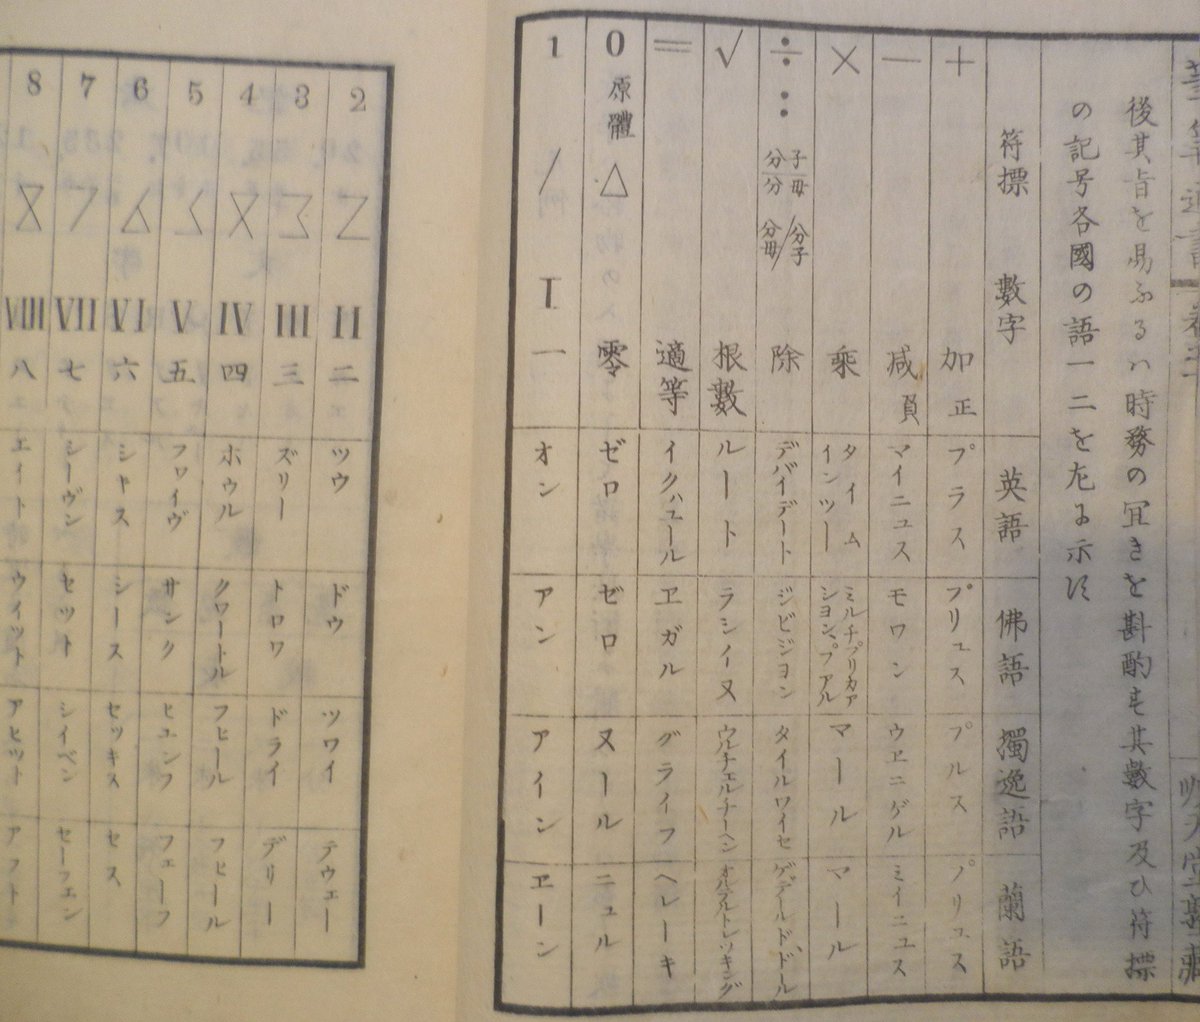 後其旨を易ふるハ時務の冝きを斟酌す其數字及ひ符標
の記号各國の語一二を左に示す
符標 數字 英語 佛語 獨逸語 蘭語
＋ 加 正 プラス プリュス プルス プリュス
― 減 負 マイニュス モワン ウヱニゲル ミイニュス
× 乘 タイムインツー ミルチプリカアション、プアル マール マール
÷ : 分子 分母 分子/分母 除 デバイデート ジビジヨン タイルワイセ ゲデールド、ドール
√ 根數 ルート ラシイーヌ ウルチェルナーヘン オルアルトレッキング
＝ 適等 イクハュール ヱガル グライフ ヘレーキ
0 原體 △ 零 ゼロ ゼロ ヌール ニュル
1 / I 一 オン アン アイン ヱーン
2 II 二 ツウ ドウ ツワイ テウェー
3 III 三 ズリー トロワ ドライ デリー
4 IV 四 ホゥル クワートル フヒール フヒール
5 V 五 フワイヴ サンク ヒユンフ フェーフ
6 VI 六 シキス シース セッキス セス
7 VII 七 シーヴン セット シイベン セーフエン
8 VIII 八 エイト ウイット アヒット アフト